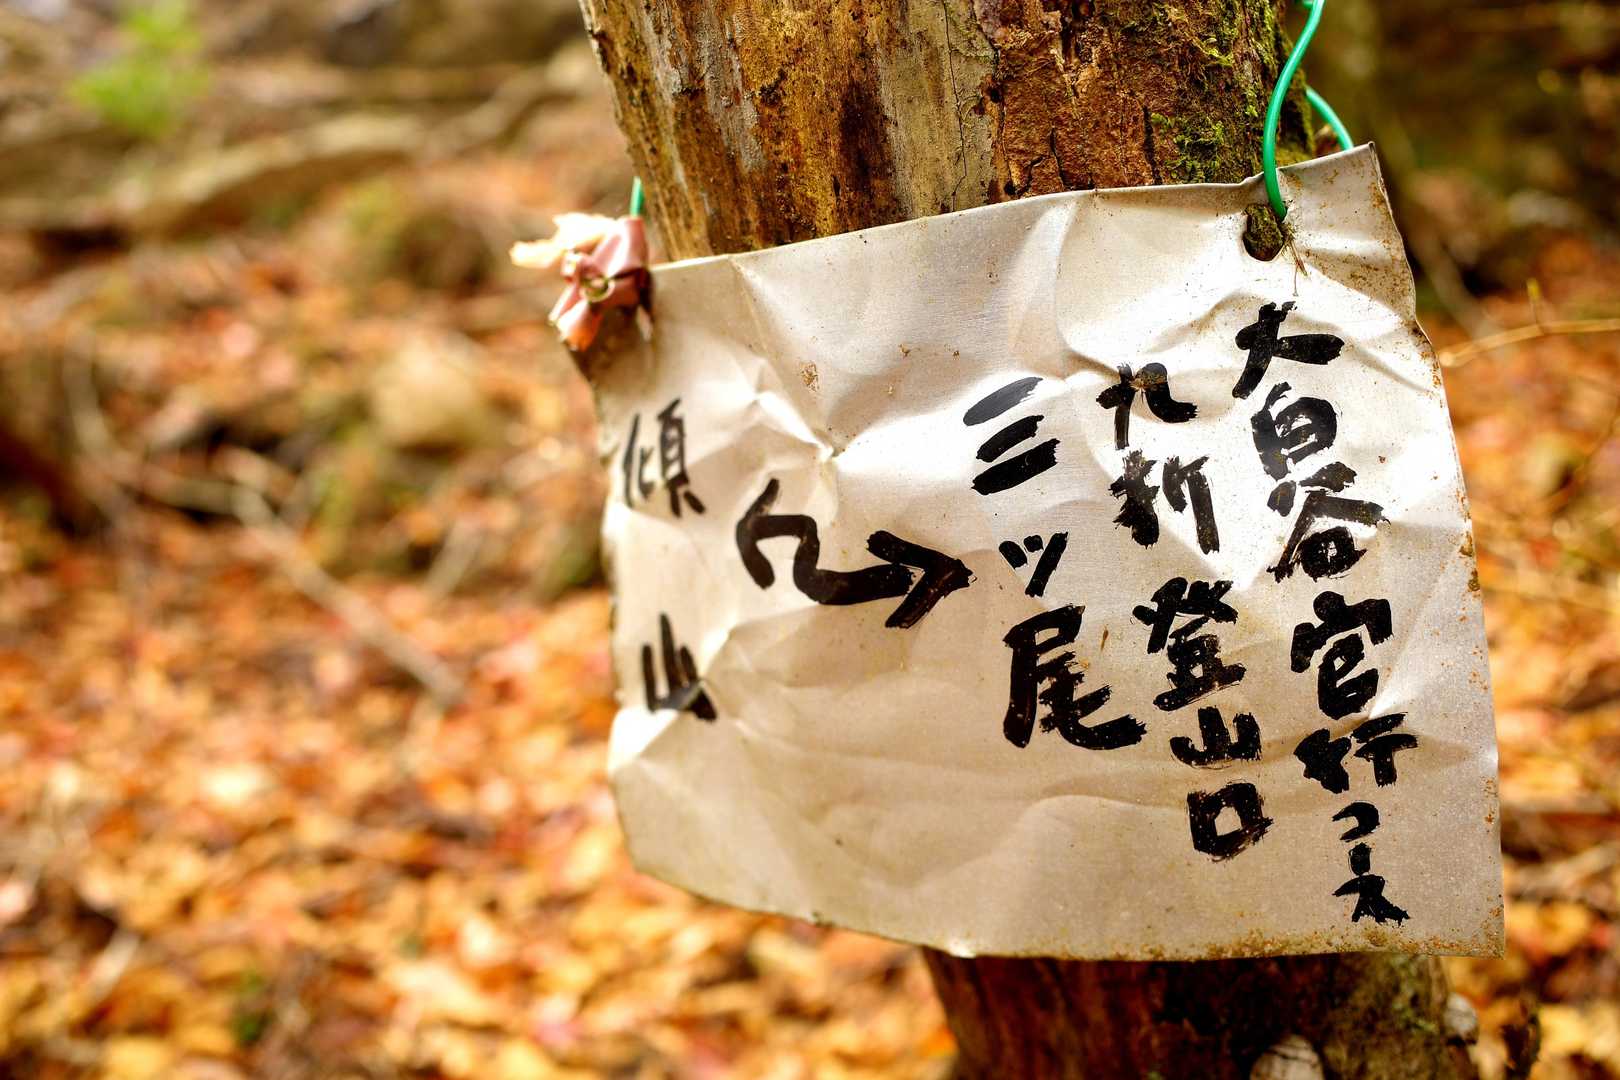 大白谷官行コース
九折登山口
三ツ尾
傾山